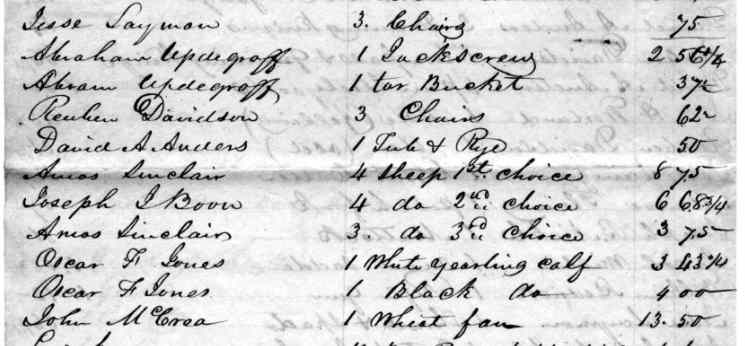 Jesse Layman 3. Chairs 75
Abraham Updegroff 1 Jackscrew 2 56 1/4
Abram Updegroff 1 tar Bucket 37 1/2
Reuben Davidson 3 Chairs 62 1/2
David A. Anders 1 Tub & Rye 50
Amos Sinclair 4 sheep 1st choice 8 75
Joseph I Boon 4 do 2nd choice 6 68 3/4
Amos Sinclair 3. do 3rd choice 3 75
Oscar F Jones 1 White yearling calf 3 43 3/4
Oscar F Jones 1 Black do 4 00
John McCrea 1 Wheat fan 13.50